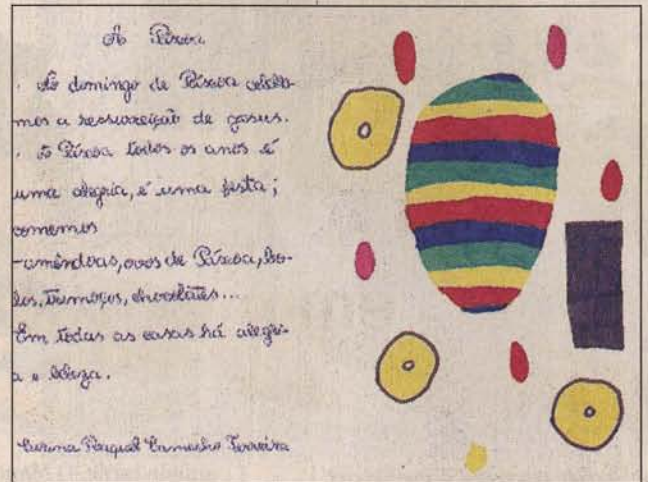 A Páscoa
. No domingo de Páscoa celebra-
mos a ressurreição de Jesus.
. A Páscoa todos os anos é
uma alegria, é uma festa;
comemos
-amêndoas, ovos de Páscoa, bo-
los, tremoços, chocolates...
Em todas as casas há alegri-
a e beleza.
Raquel Camacho Ferreira